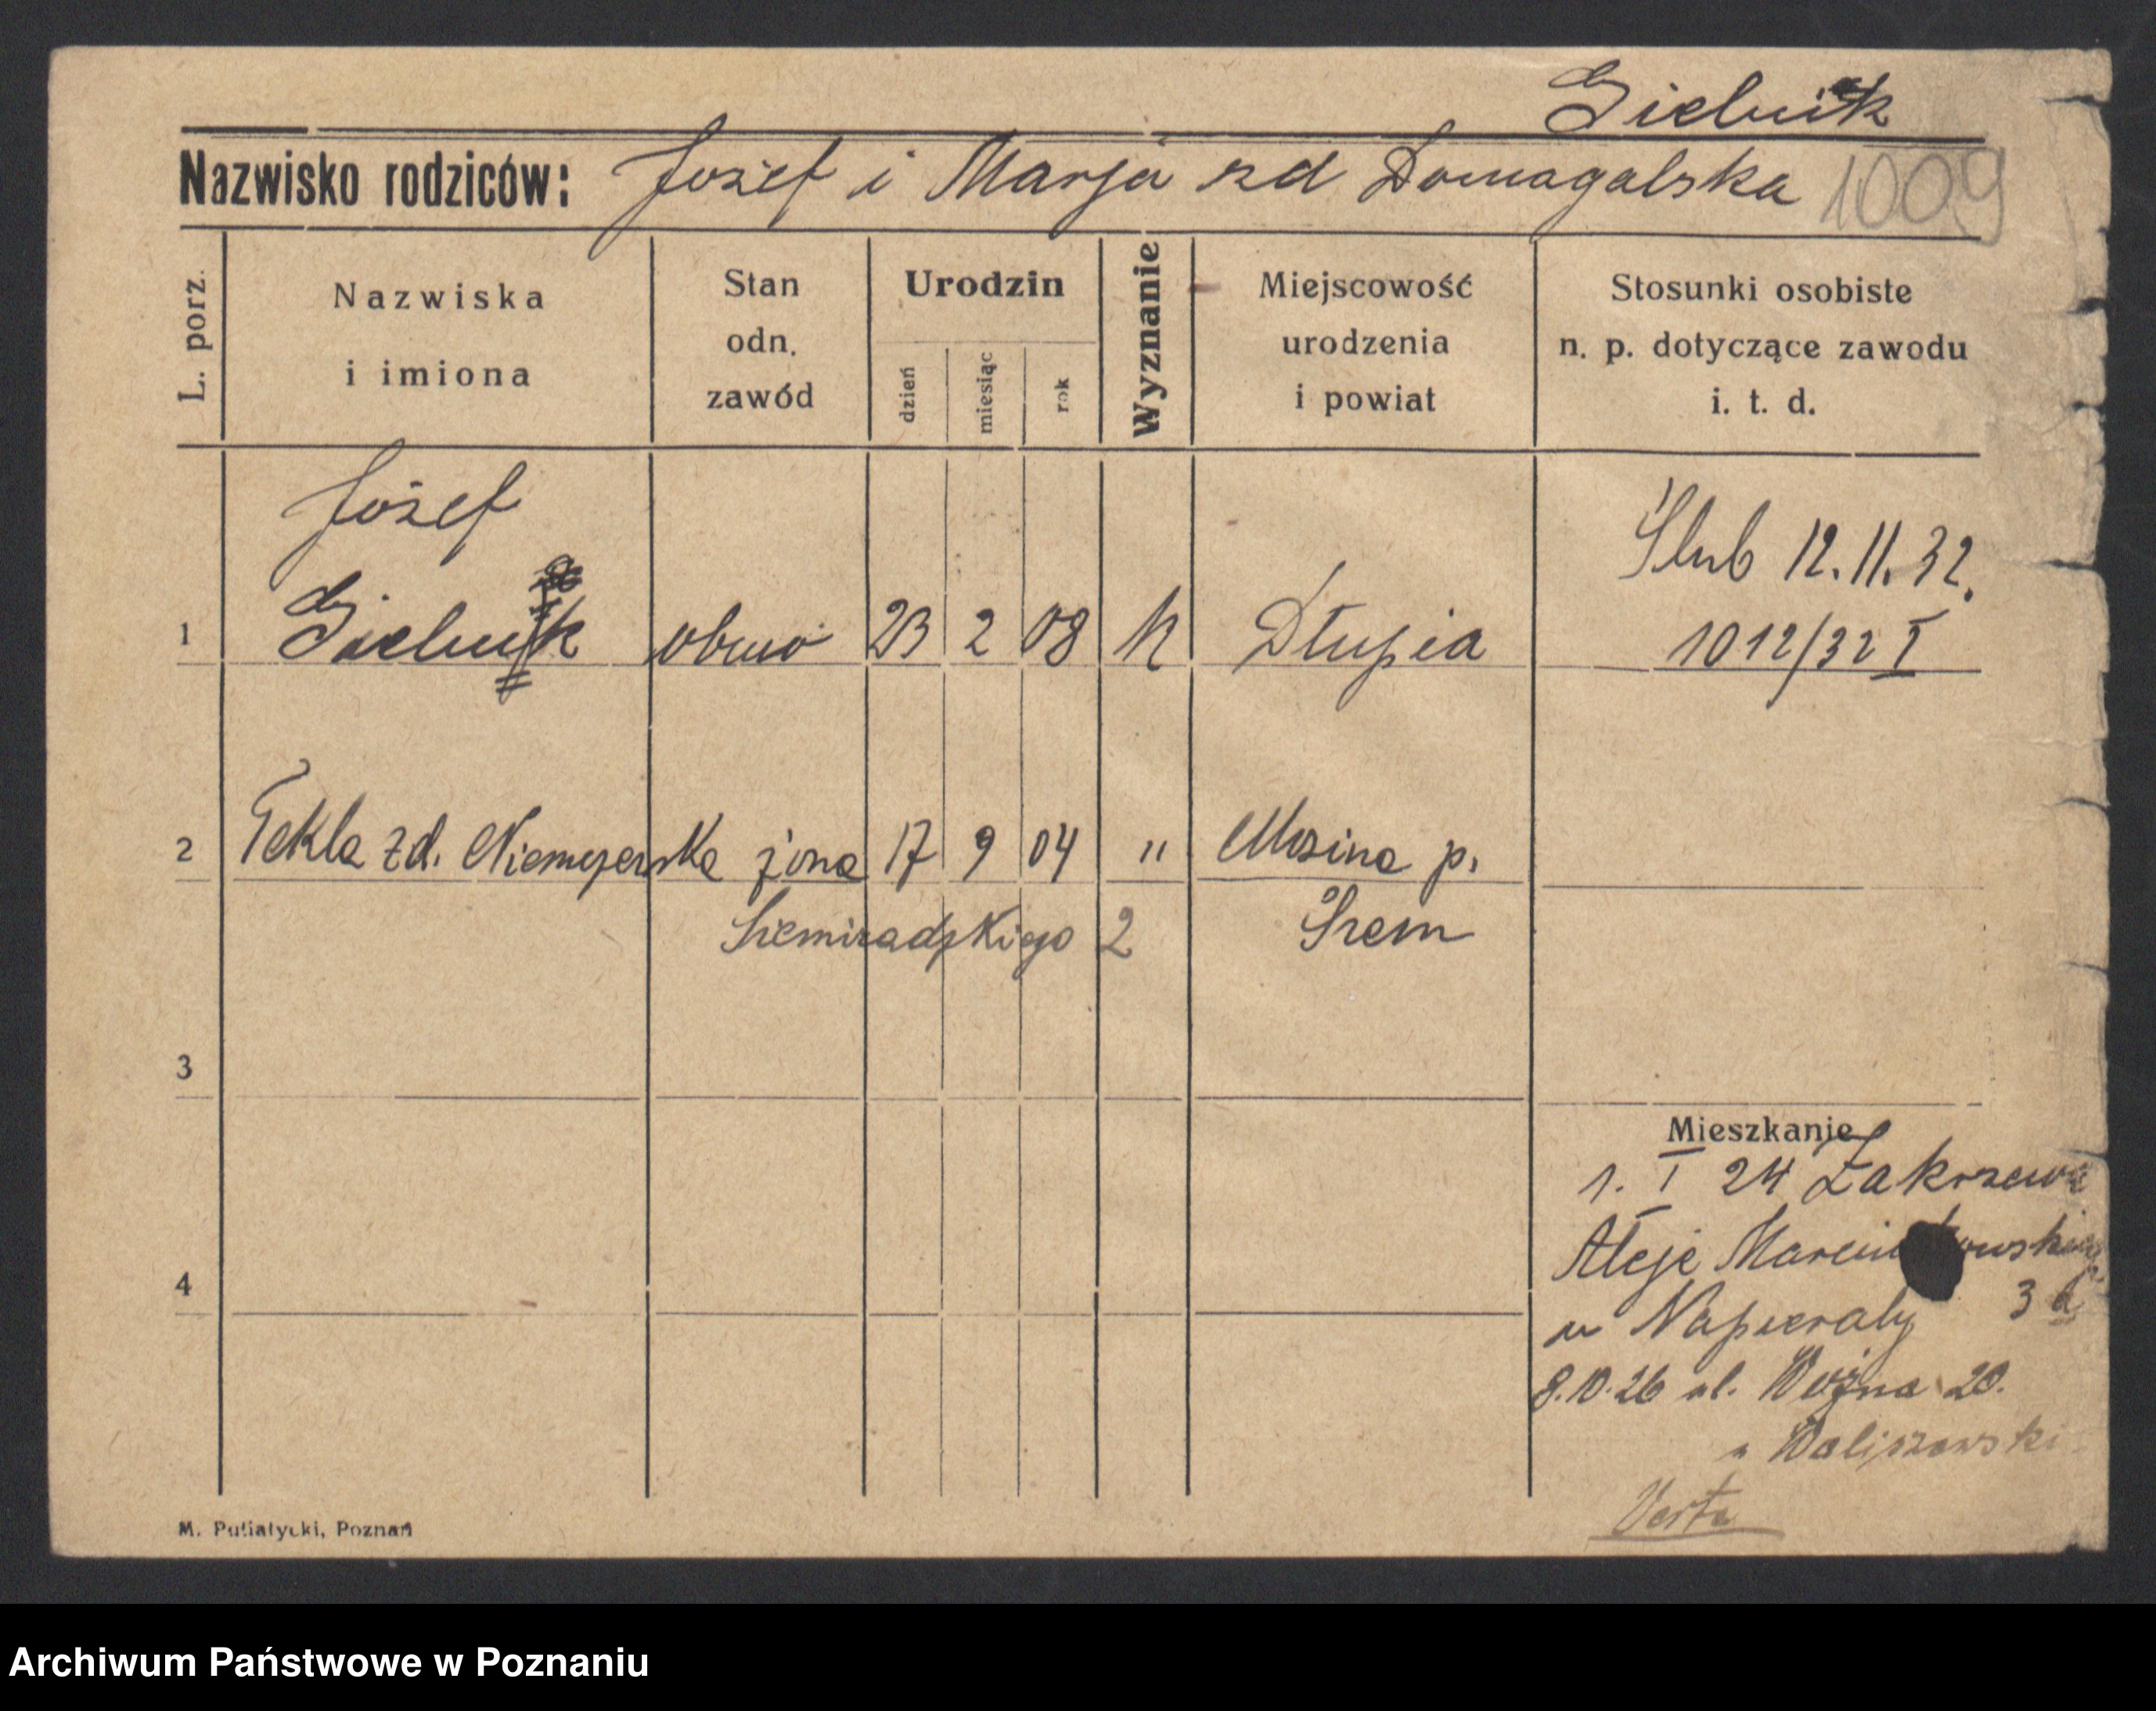 Gielnik
Nazwisko rodziców: Józef i Marja zd Domagalska 1009
L. porz.
Nazwiska
i imiona
Stan
odn.
zawód
Urodzin
dzień
miesiąc
rok
Wyznanie
Miejscowość
urodzenia
i powiat
Stosunki osobiste
n. p. dotyczące zawodu
i. t. d.
Józef
Ślub 12.11.32.
1 Gielnik 23 2 08 k Słupia 1012/32 I
2 Tekla zd. żona 17 9 04 " Mosina p.
Siemiradzkiego 2 Śrem
3
Mieszkanie
1. I 24 Zakrzewo
4
Aleje
u Napierały 3 a
8.10.26 ul. Woźna 20.
u Waliszewski
Verte
M. Putiatycki, Poznań
Archiwum Państwowe w Poznaniu